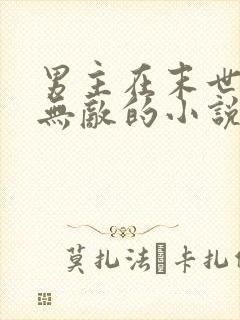 男主在末世
無敵的小說
莫扎法·卡扎